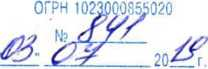 ОГРН 1023000855020
№ 891
03 " 07 2019 г.